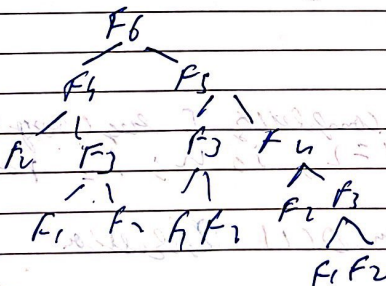 F6
F4 F5
F2 F3 F3 F4
F1 F2 F1 F2 F2 F3
F1 F2